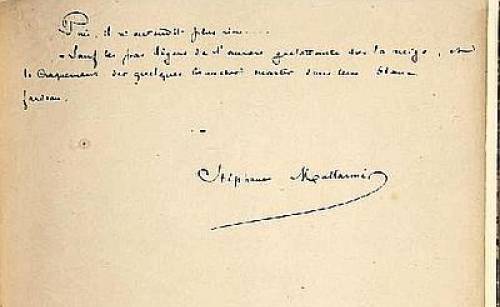 Puis, il n'entendit plus rien....
— Sauf les pas légers de l'aurore grelottante sur la neige, et
le craquement des quelques branches mortes sous leur blanc
fardeau.
Stéphane Mallarmé